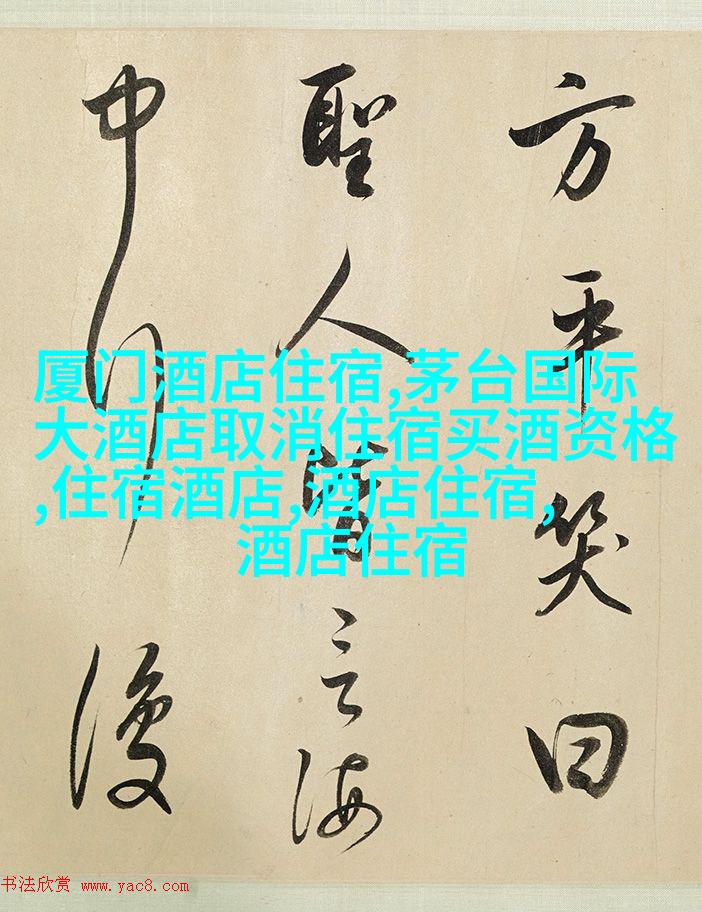 方平笑曰
聖人皆言海
中行復
厦门酒店住宿,茅台国际
大酒店取消住宿买酒资格
,住宿酒店,酒店住宿,
酒店住宿
书法欣赏 www.yac8.com